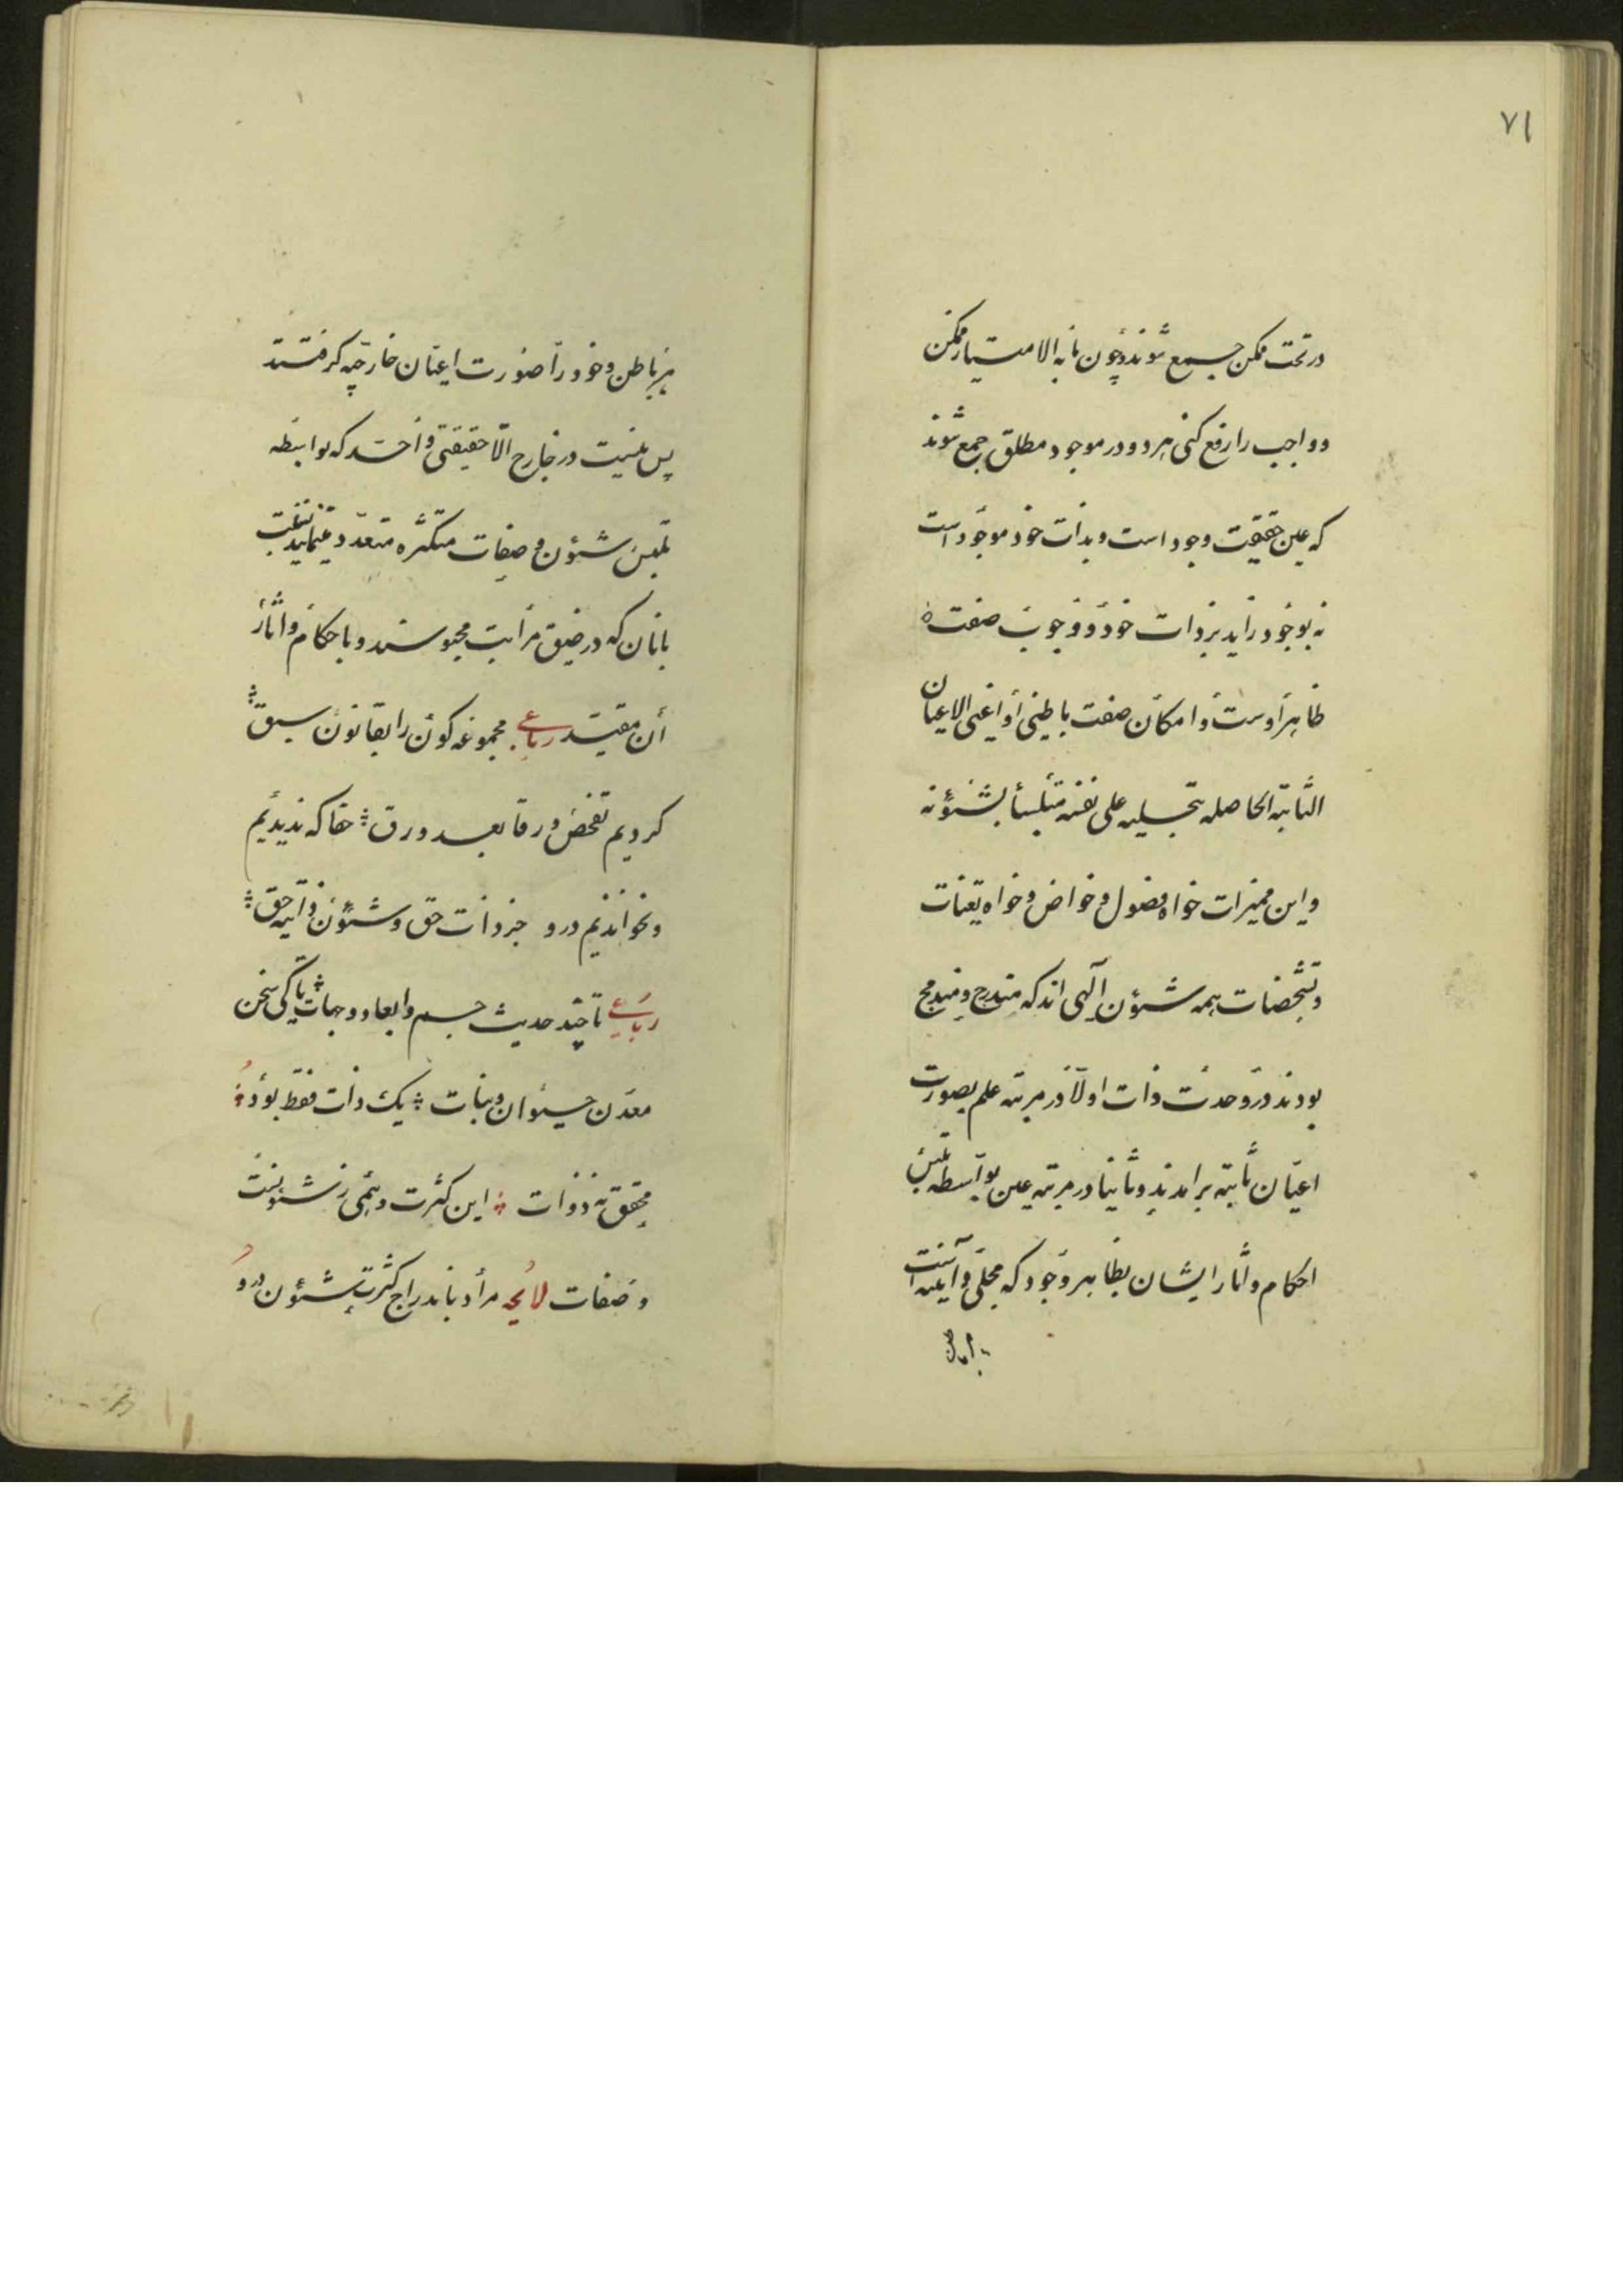 ۷۱
در تحت ممکن جمع شوند و چون ما به الامتیاز ممکن
و واجب را رفع کنی هر دو در موجود مطلق جمع شوند
که عین حقیقت وجود است و بذات خود موجود است
نه بوجود زاید بر ذات خود و وجوب صفت
ظاهر اوست و امکان صفت باطنی او اعنی الاعیان
الثابته الحاصله بتجلیه علی نفسه متلبسا بشئونه
و این ممیزات خواه فصول و خواص و خواه تعینات
و تشخصات همه شئون الهی اند که مندرج و مندمج
بودند در وحدت ذات اولا در مرتبه علم بصورت
اعیان ثابته برامدند و ثانیا در مرتبه عین بواسطه تلبس
احکام و آثار ایشان بظاهر وجود که مجلی و آیینه است
مر باطن وجود را صورت اعیان خارجیه گرفتند
پس نیست در خارج الا حقیقتی واحد که بواسطه
تلبس شئون و صفات متکثره متعدد مینماید نسبت
بانان که در ضیق مراتب محبوسند و باحکام و اثار
آن مقید رباعی مجموعه کون را بقانون سبق
کردیم تفحص ورقا بعد ورق حقا که ندیدیم
و نخواندیم درو جز ذات حق و شئون ذاتیه حق
رباعی تا چند حدیث جسم و ابعاد و جهات تا کی سخن
معدن حیوان و نبات یک ذات فقط بود
محقق نه ذوات این کثرت وهمی ز شئونست
و صفات لایحه مراد باندراج کثرت شئون در و